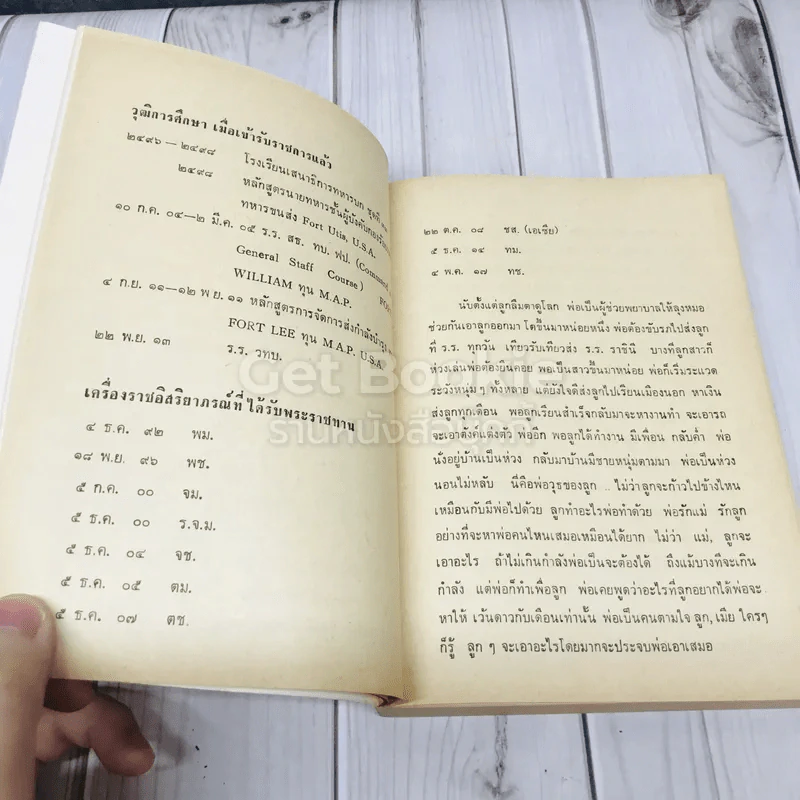 วุฒิการศึกษา เมื่อเข้ารับราชการแล้ว
๒๔๙๖ – ๒๔๙๘ โรงเรียนเสนาธิการทหารบก ชุดที่
๒๔๙๘ หลักสูตรนายทหารชั้นผู้บังคับกองร้อย
ทหารขนส่ง Fort Utis, U.S.A.
๑๐ ก.ค. ๐๔–๒ มี.ค. ๐๕ ร.ร. สธ. ทบ. ฟป. (Command
General Staff Course)
WILLIAM ทุน M.A.P.
๔ ก.ย. ๑๑–๑๒ พ.ย. ๑๑ หลักสูตรการจัดการส่งกำลังบำรุง
FORT LEE ทุน M.A.P. U.S.A.
๒๒ พ.ย. ๑๓ ร.ร. วทบ.
เครื่องราชอิสริยาภรณ์ที่ได้รับพระราชทาน
๔ ธ.ค. ๙๒ พม.
๑๘ พ.ย. ๙๖ พช.
๕ ก.ค. ๐๐ จม.
๕ ธ.ค. ๐๐ ร.จ.ม.
๕ ธ.ค. ๐๔ จช.
๕ ธ.ค. ๐๕ ตม.
๕ ธ.ค. ๐๗ ตช.
๒๒ ต.ค. ๐๘ ชส. (เอเซีย)
๕ ธ.ค. ๑๔ ทม.
๔ พ.ค. ๑๗ ทช.
นับตั้งแต่ลูกลืมตาดูโลก พ่อเป็นผู้ช่วยพยาบาลให้ลุงหมอ
ช่วยกันเอาลูกออกมา โตขึ้นมาหน่อยหนึ่ง พ่อต้องขับรถไปส่งลูก
ที่ ร.ร. ทุกวัน เทียวรับเทียวส่ง ร.ร. ราชินี บางทีลูกสาวก็
ห่วงเล่นพ่อต้องยืนคอย พอเป็นสาวขึ้นมาหน่อย พ่อก็เริ่มระแวด
ระวังหนุ่ม ๆ ทั้งหลาย แต่ยังใจดีส่งลูกไปเรียนเมืองนอก หาเงิน
ส่งลูกทุกเดือน พอลูกเรียนสำเร็จกลับมาจะหางานทำ จะเอารถ
จะเอาตังค์แต่งตัว พ่ออีก พอลูกได้ทำงาน มีเพื่อน กลับค่ำ พ่อ
นั่งอยู่บ้านเป็นห่วง กลับมาบ้านมีชายหนุ่มตามมา พ่อเป็นห่วง
นอนไม่หลับ นี่คือพ่อวุธของลูก .. ไม่ว่าลูกจะก้าวไปข้างไหน
เหมือนกับมีพ่อไปด้วย ลูกทำอะไรพ่อทำด้วย พ่อรักแม่ รักลูก
อย่างที่จะหาพ่อคนไหนเสมอเหมือนได้ยาก ไม่ว่า แม่, ลูกจะ
เอาอะไร ถ้าไม่เกินกำลังพ่อเป็นจะต้องได้ ถึงแม้บางทีจะเกิน
กำลัง แต่พ่อก็ทำเพื่อลูก พ่อเคยพูดว่าอะไรที่ลูกอยากได้พ่อจะ
หาให้ เว้นดาวกับเดือนเท่านั้น พ่อเป็นคนตามใจ ลูก, เมีย ใครๆ
ก็รู้ ลูก ๆ จะเอาอะไรโดยมากจะประจบพ่อเอาเสมอ